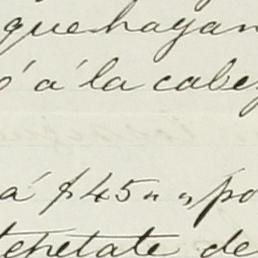 que hayan
ó á la cabe
á $45 „ „ po
tepetate de